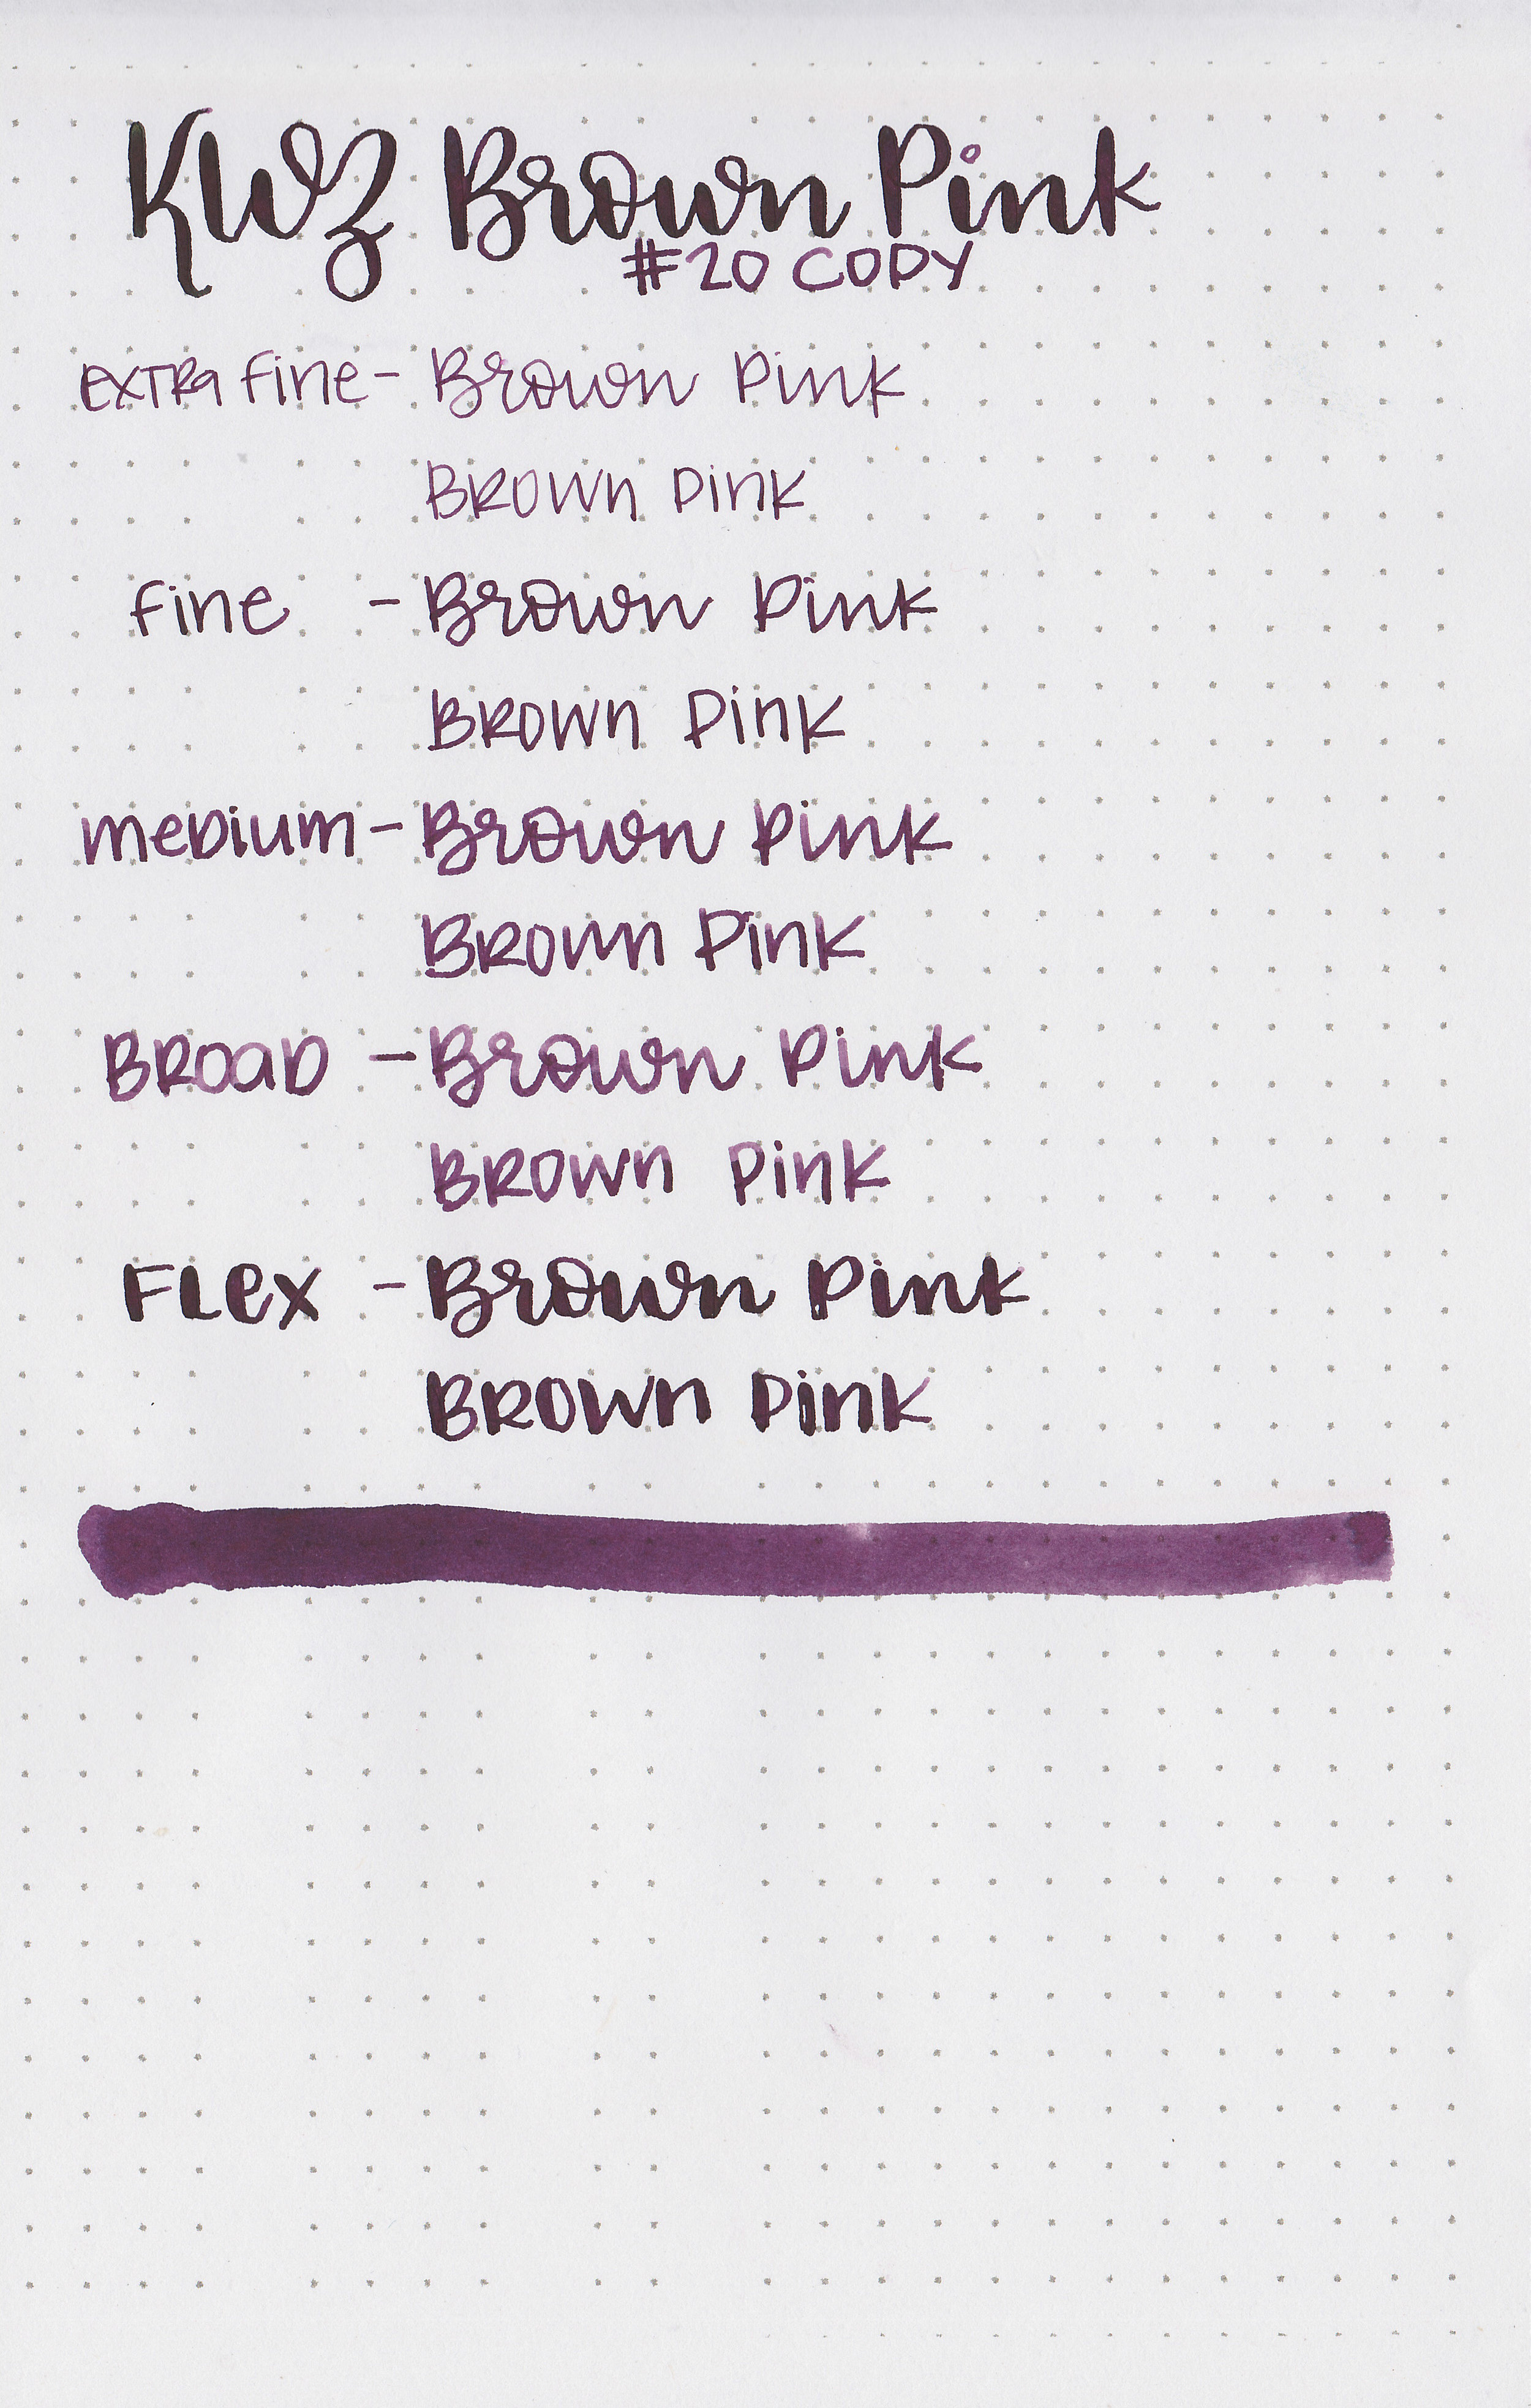 KWZ Brown Pink
#20 COPY
EXTRA fine - Brown Pink
BROWN Pink
fine - Brown Pink
BROWN Pink
MEDIUM - Brown Pink
BROWN Pink
BROAD - Brown Pink
BROWN Pink
FLex - Brown Pink
BROWN Pink